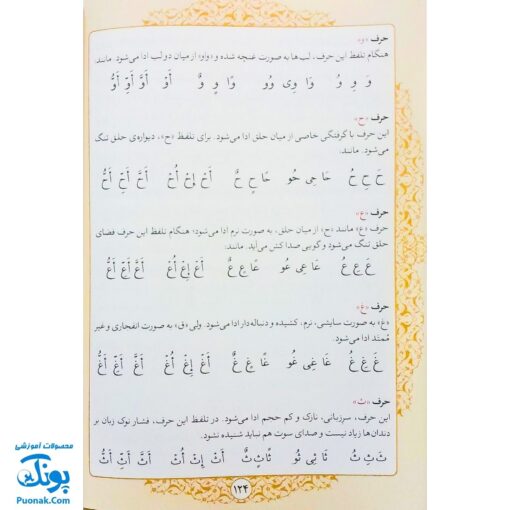 حرف «و»
هنگام تلفظ این حرف، لب‌ها به صورت غنچه شده و «واو» از میان دو لب ادا می‌شود. مانند:
وَ وِ وُ وَا وِی وُو وًا وٍ وٌ أَوْ أَوَّ أَوِّ أَوُّ
حرف «ح»
این حرف با گرفتگی خاصی از میان حلق ادا می‌شود. برای تلفظ «ح»، دیواره‌ی حلق تنگ
می‌شود. مانند:
حَ حِ حُ حَا حِی حُو حًا حٍ حٌ أَحْ إِحْ أُحْ أَحَّ أَحِّ أَحُّ
حرف «ع»
حرف «ع» مانند «ح» از میان حلق، به صورت نرم ادا می‌شود؛ هنگام تلفظ این حرف فضای
حلق تنگ می‌شود و گویی صدا کش می‌آید. مانند:
عَ عِ عُ عَا عِی عُو عًا عٍ عٌ أَعْ إِعْ أُعْ أَعَّ أَعِّ أَعُّ
حرف «غ»
«غ» به صورت سایشی، نرم، کشیده و دنباله‌دار ادا می‌شود. ولی «ق» به صورت انفجاری و غیر
مُمتد ادا می‌شود.
غَ غِ غُ غَا غِی غُو غًا غٍ غٌ أَغْ إِغْ أُغْ أَغَّ أَغِّ أَغُّ
حرف «ث»
این حرف، سرزبانی، نازک و کم حجم ادا می‌شود. در تلفظ این حرف، فشار نوک زبان بر
دندان‌ها زیاد نیست و صدای سوت هم نباید شنیده نشود.
ثَ ثِ ثُ ثَا ثِی ثُو ثًا ثٍ ثٌ أَثْ إِثْ أُثْ أَثَّ أَثِّ أَثُّ
۱۲۴
محصولات آموزشی
پونک
Puonak.com